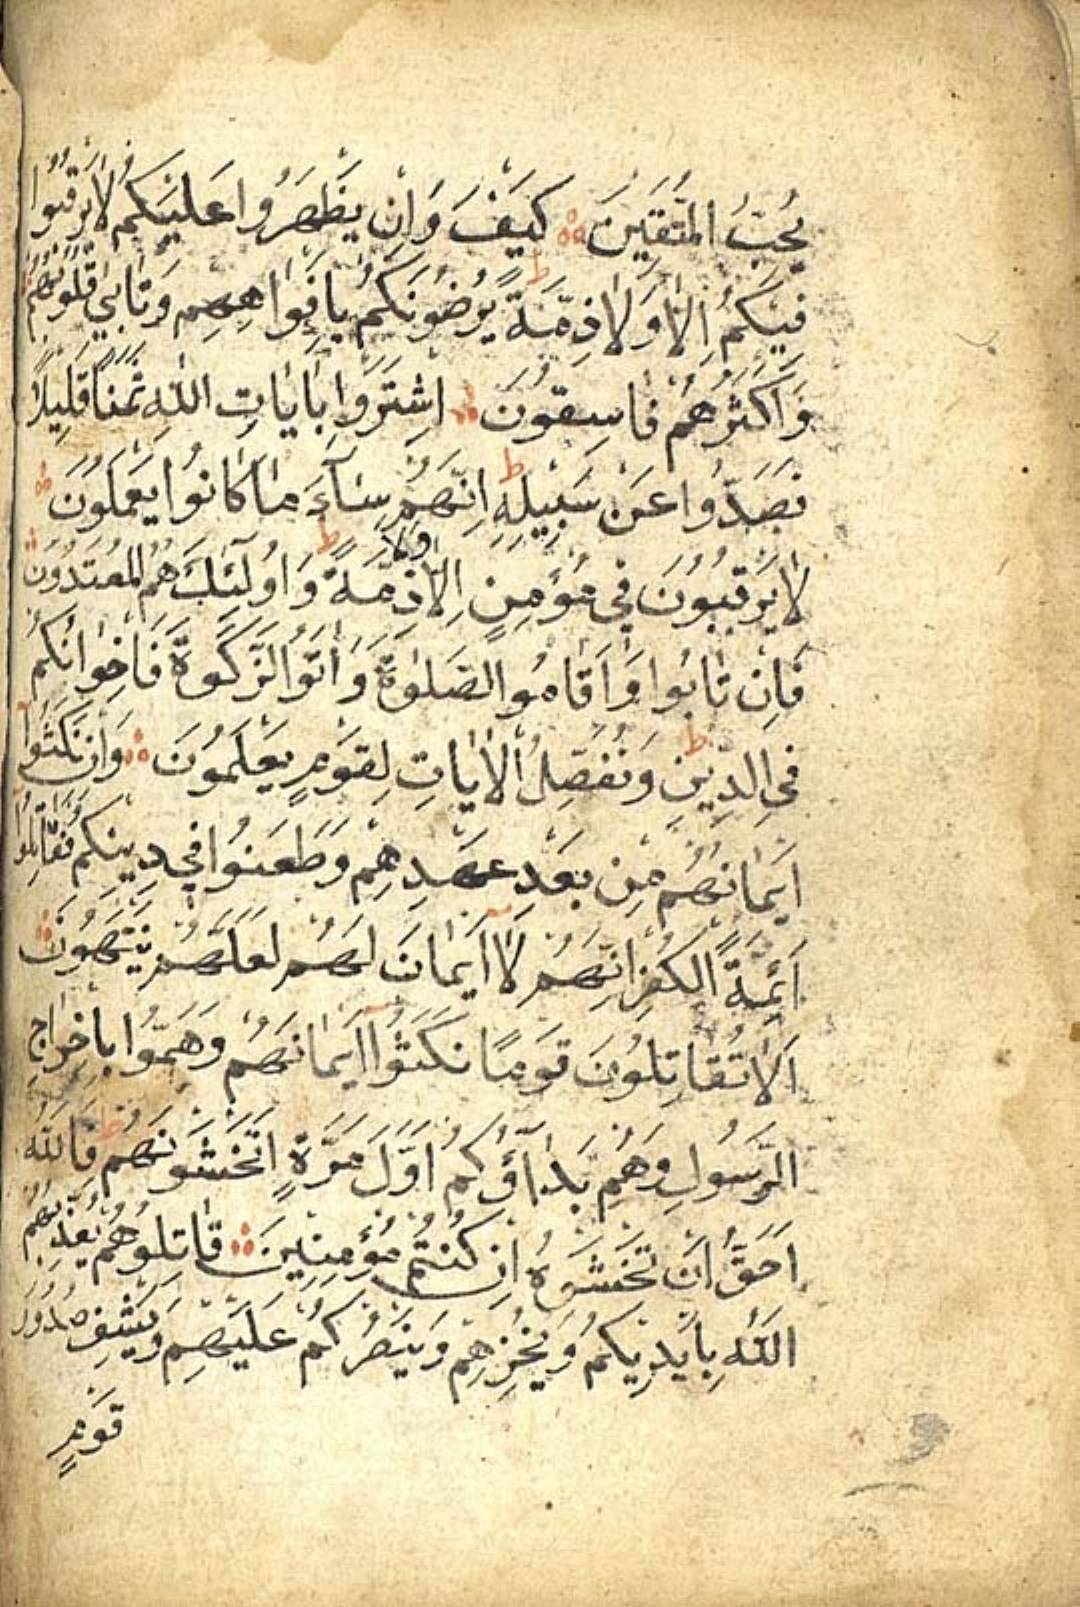 يُحِبُّ الْمُتَّقِينَ كَيْفَ وَاِنْ يَظْهَرُوا عَلَيْكُمْ لَا يَرْقُبُوا
فِيكُمْ اِلًّا وَلَا ذِمَّةً ط يُرْضُونَكُمْ بِاَفْوَاهِهِمْ وَتَاْبٰى قُلُوبُهُمْ
وَاَكْثَرُهُمْ فَاسِقُونَ اِشْتَرَوْا بِاٰيَاتِ اللّٰهِ ثَمَنًا قَلِيلًا
فَصَدُّوا عَنْ سَبِيلِهِ ط اِنَّهُمْ سَآءَ مَا كَانُوا يَعْمَلُونَ
لَا يَرْقُبُونَ فِي مُؤْمِنٍ اِلًّا وَلَا ذِمَّةً ط وَاُولٰٓئِكَ هُمُ الْمُعْتَدُونَ
فَاِنْ تَابُوا وَاَقَامُوا الصَّلٰوةَ وَاٰتَوُا الزَّكٰوةَ فَاِخْوَانُكُمْ
فِي الدِّينِ ط وَنُفَصِّلُ الْاٰيَاتِ لِقَوْمٍ يَعْلَمُونَ وَاِنْ نَكَثُوٓا
اَيْمَانَهُمْ مِنْ بَعْدِ عَهْدِهِمْ وَطَعَنُوا فِي دِينِكُمْ فَقَاتِلُٓوا
اَئِمَّةَ الْكُفْرِ اِنَّهُمْ لَٓا اَيْمَانَ لَهُمْ لَعَلَّهُمْ يَنْتَهُونَ
اَلَا تُقَاتِلُونَ قَوْمًا نَكَثُٓوا اَيْمَانَهُمْ وَهَمُّوا بِاِخْرَاجِ
الرَّسُولِ وَهُمْ بَدَاٰؤُكُمْ اَوَّلَ مَرَّةٍ ط اَتَخْشَوْنَهُمْ ط فَاللّٰهُ
اَحَقُّ اَنْ تَخْشَوْهُ اِنْ كُنْتُمْ مُؤْمِنِينَ قَاتِلُوهُمْ يُعَذِّبْهُمُ
اللّٰهُ بِاَيْدِيكُمْ وَيُخْزِهِمْ وَيَنْصُرْكُمْ عَلَيْهِمْ وَيَشْفِ صُدُورَ
قَوْمٍ